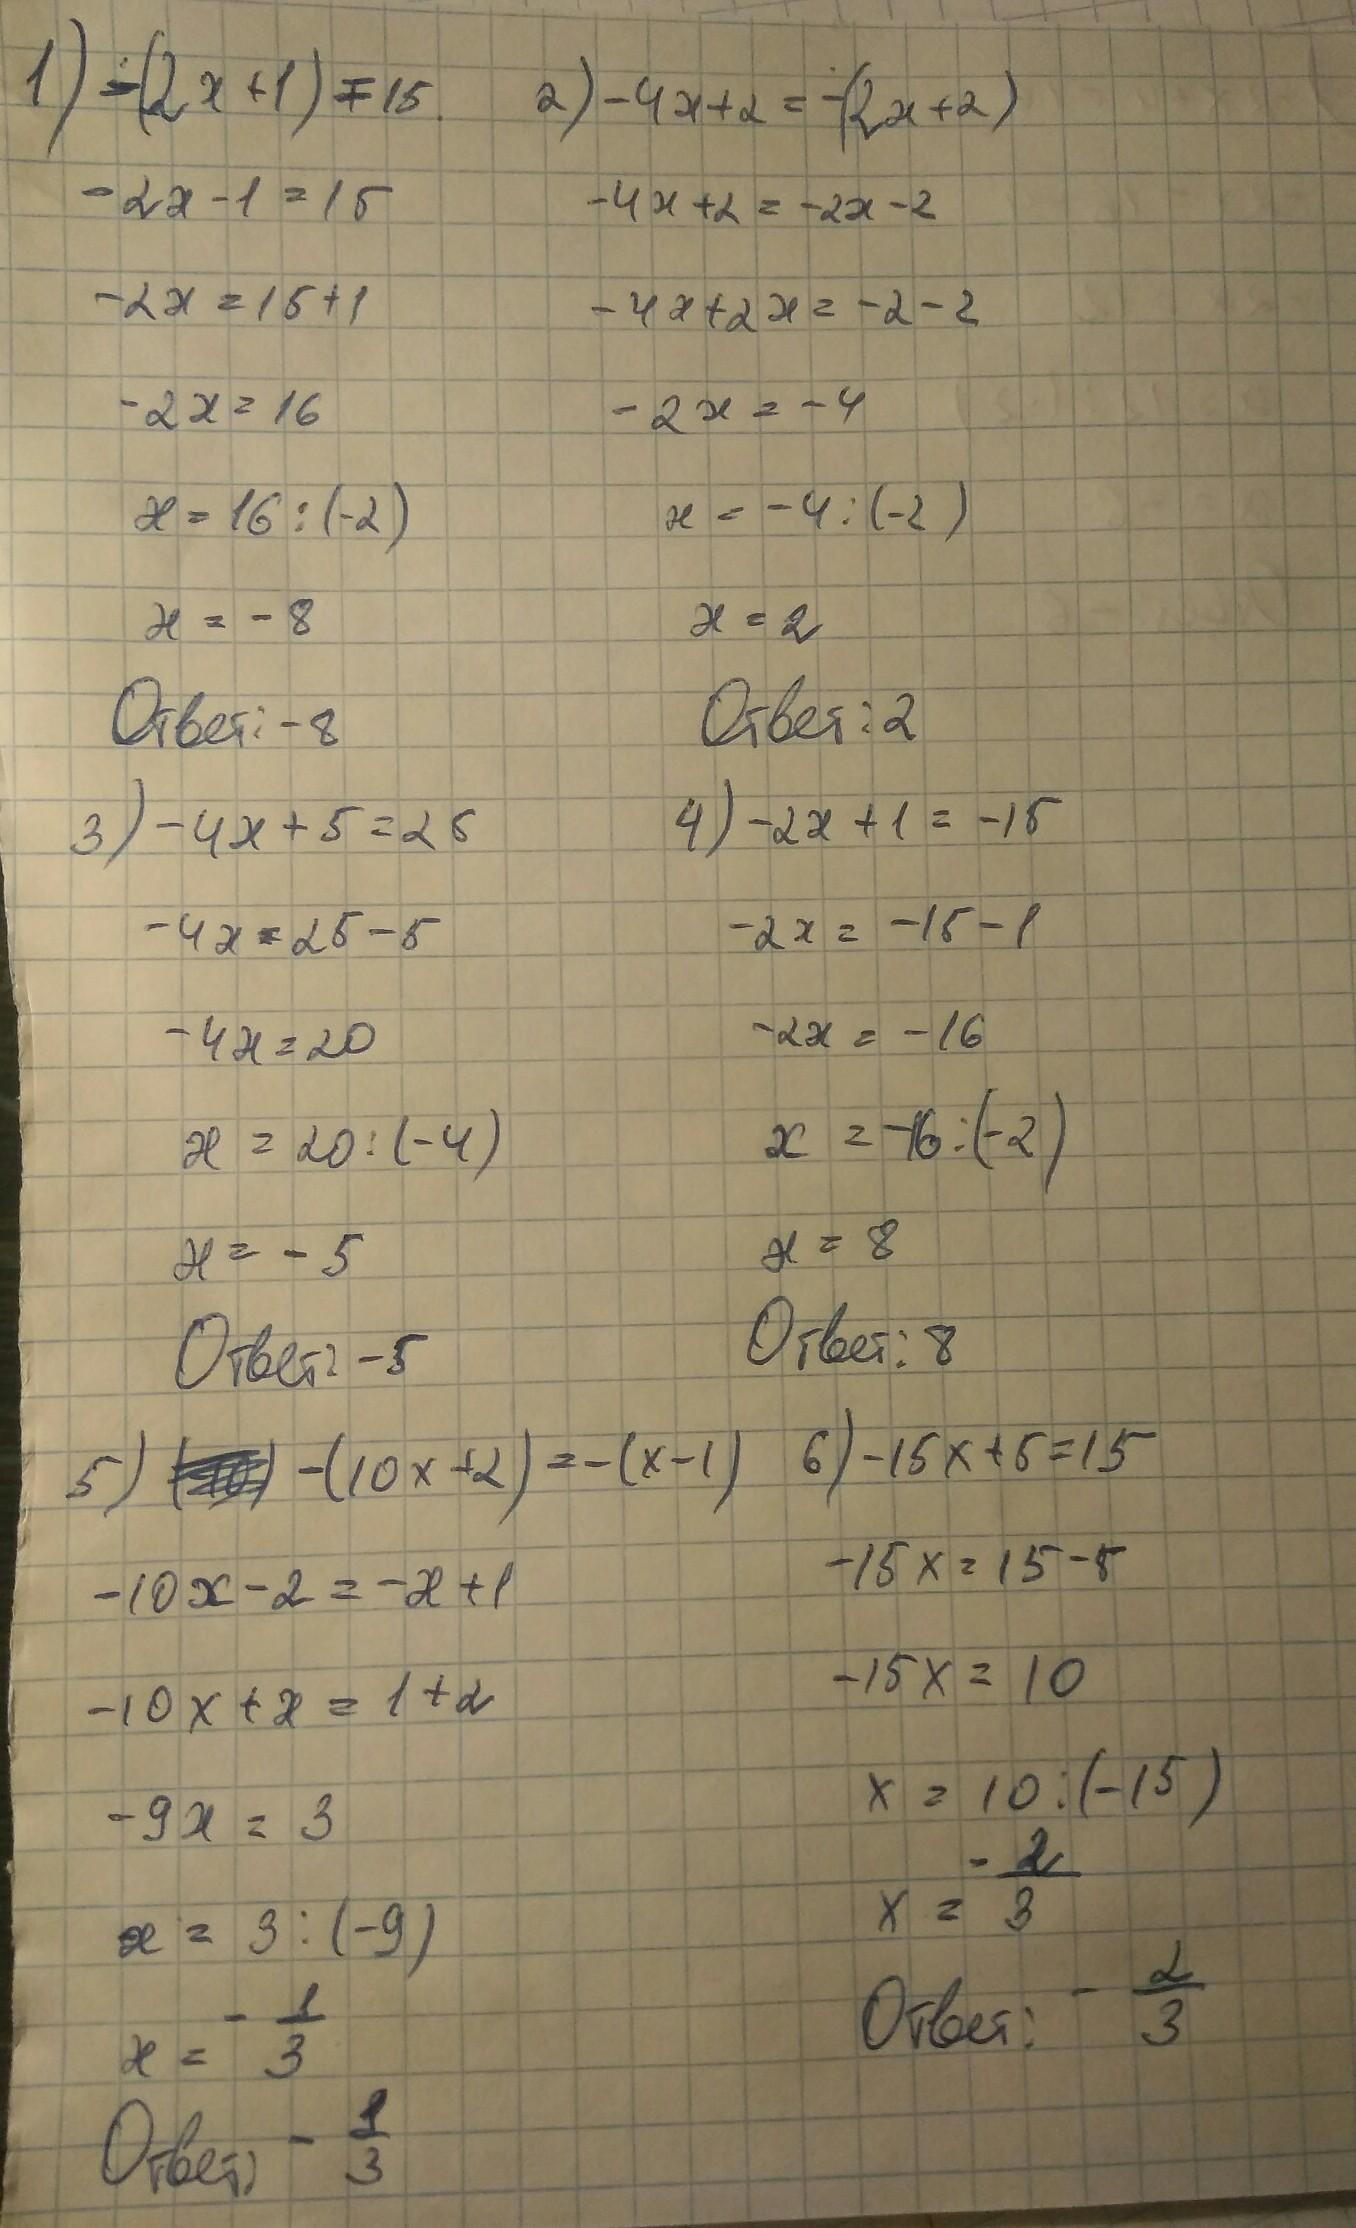 1) -(2x+1)=15.
-2x-1=15
-2x=15+1
-2x=16
x=16:(-2)
x=-8
Ответ:-8
2) -4x+2=-(2x+2)
-4x+2=-2x-2
-4x+2x=-2-2
-2x=-4
x=-4:(-2)
x=2
Ответ:2
3) -4x+5=25
-4x=25-5
-4x=20
x=20:(-4)
x=-5
Ответ:-5
4) -2x+1=-15
-2x=-15-1
-2x=-16
x=-16:(-2)
x=8
Ответ:8
5) -(10x+2)=-(x-1)
-10x-2=-x+1
-10x+x=1+2
-9x=3
x=3:(-9)
x=-1/3
Ответ: -1/3
6) -15x+5=15
-15x=15-5
-15x=10
x=10:(-15)
x=-2/3
Ответ: -2/3